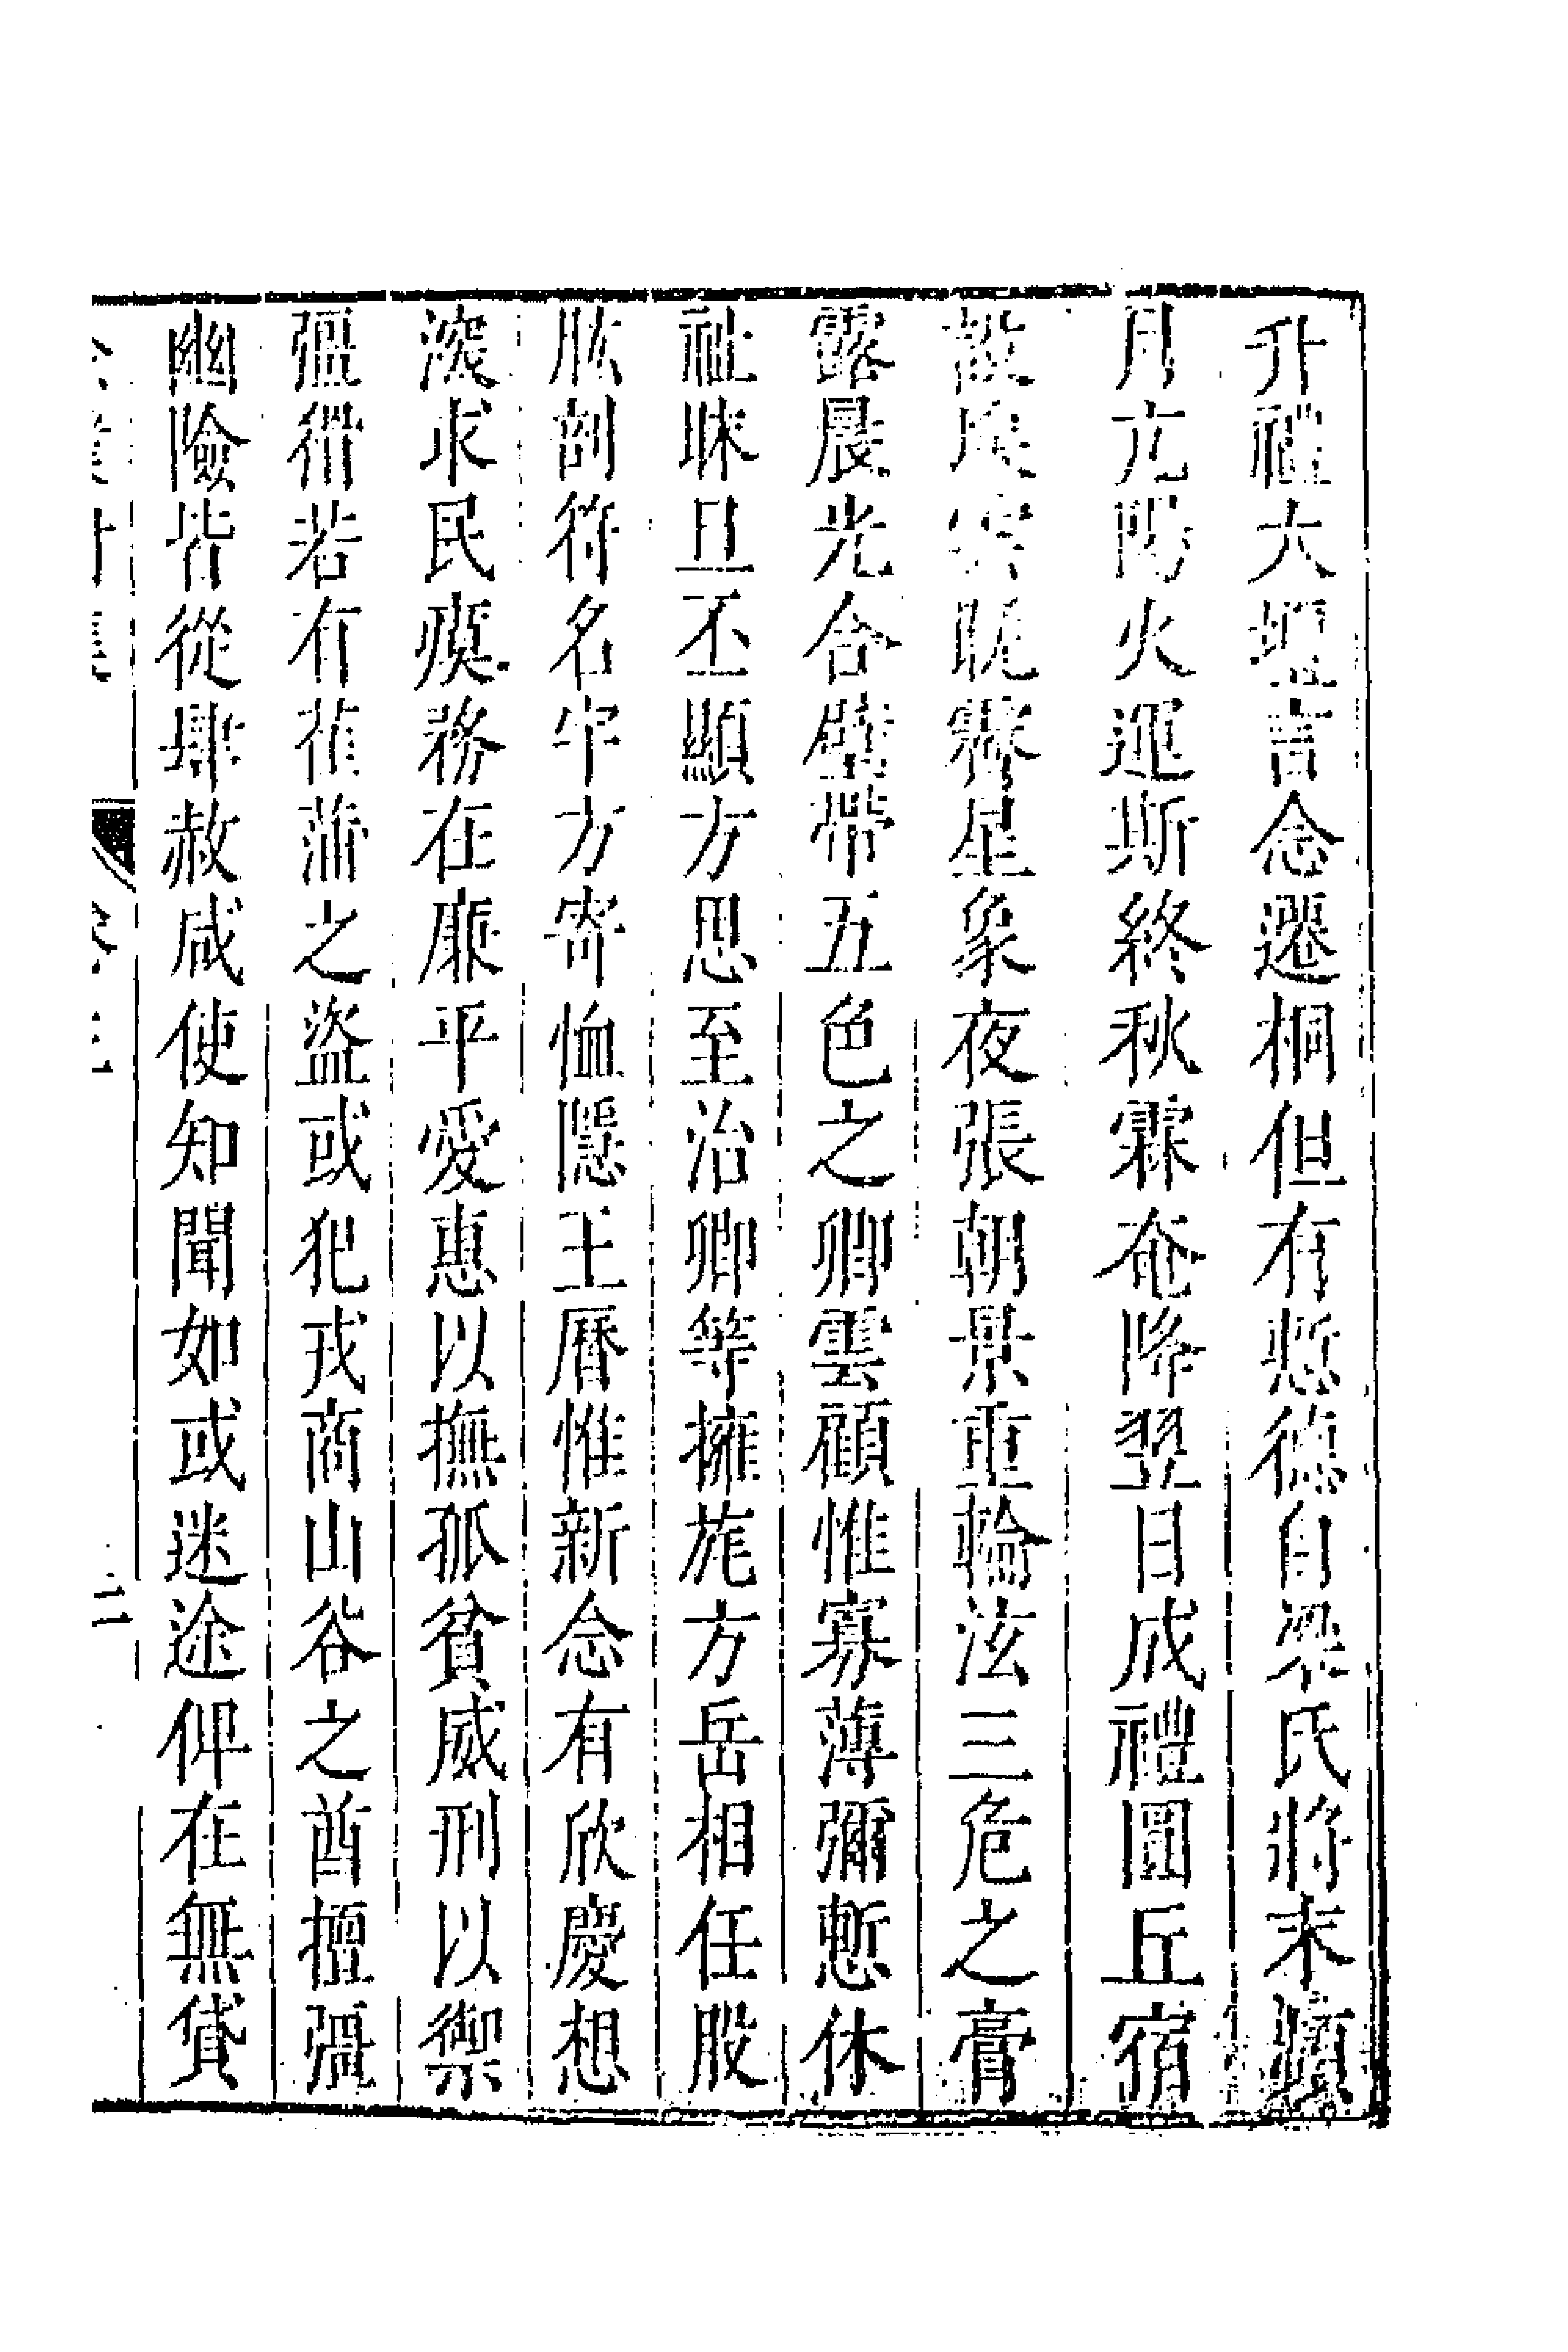 升禮大壇言念遷桐但有慙德自梁氏將末頻
月亢陽火運斯終秋霖奄降翌日成禮圓丘宿
設埃雲晚霽星象夜張朝景重輪泫三危之膏
露晨光合璧帶五色之卿雲顧惟寡薄彌慙休
祉昧旦丕顯方思至治卿等擁旄方岳相任股
肱剖符名守方寄恤隱王曆惟新念有欣慶想
深求民瘼務在廉平愛惠以撫孤貧威刑以禦
彊猾若有萑蒲之盜或犯戎商山谷之酋擅彊
幽險皆從肆赦咸使知聞如或迷途俾在無貸